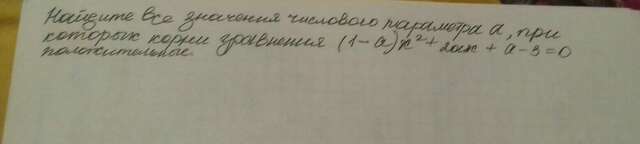 Найдите все значения числового параметра a, при
которых корни уравнения (1-a)x²+2ax+a-3=0
положительные.